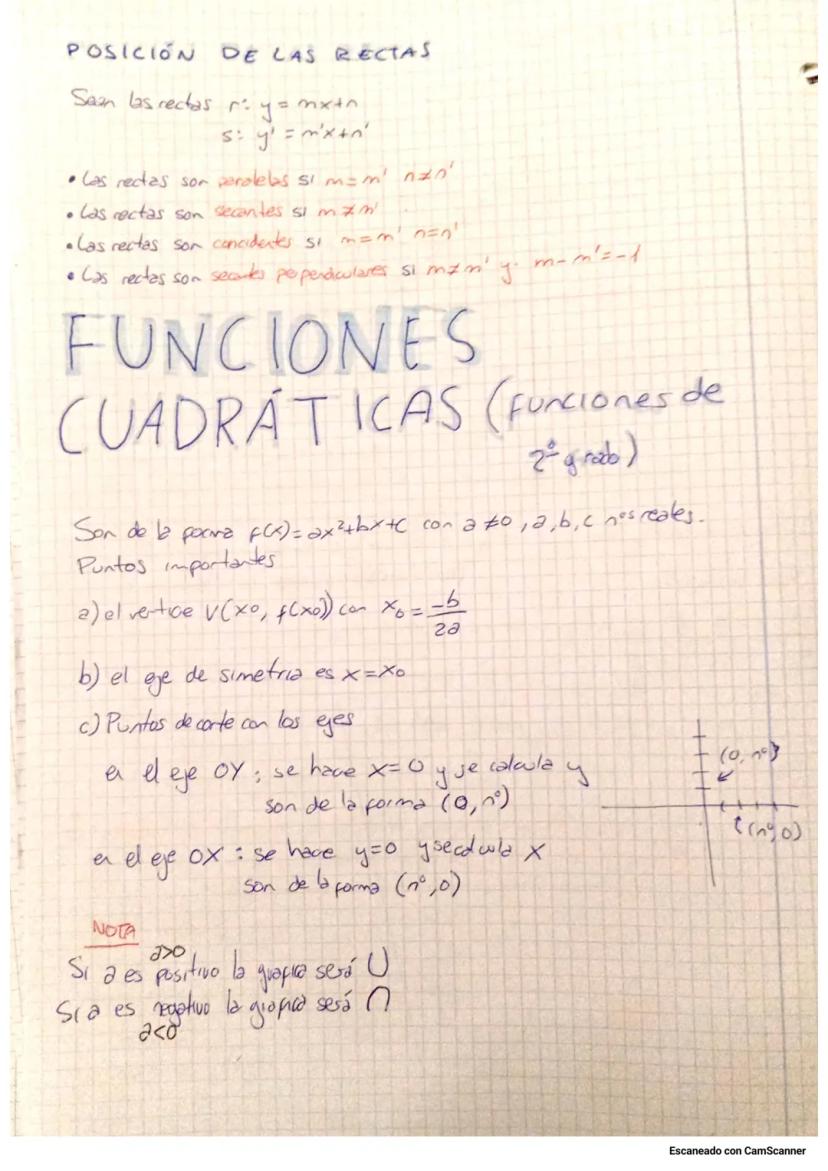 POSICIÓN DE LAS RECTAS
Sean las rectas r: y = mx+n
s: y' = m'x+n'
• Las rectas son paralelas si m=m' n≠n'
• Las rectas son secantes si m≠m'
• Las rectas son concidentes si m=m' n=n'
• Las rectas son secantes perpendiculares si m≠m' y. m-m'=-1
FUNCIONES
CUADRÁTICAS (funciones de
2º grado)
Son de la forma f(x)=ax²+bx+c con a≠0, a,b,c nºs reales.
Puntos importantes
a) el vertice V(x0, f(x0)) con x0 = -b/2a
b) el eje de simetria es x=x0
c) Puntos de corte con los ejes
en el eje OY: se hace x=0 y se calcula y
son de la forma (0,nº)
(0,nº)
(nº,0)
en el eje OX: se hace y=0 y se calcula x
son de la forma (nº,0)
NOTA
a>0
Si a es positivo la grafica será U
Si a es negativo la grafica será ∩
a<0
Escaneado con CamScanner